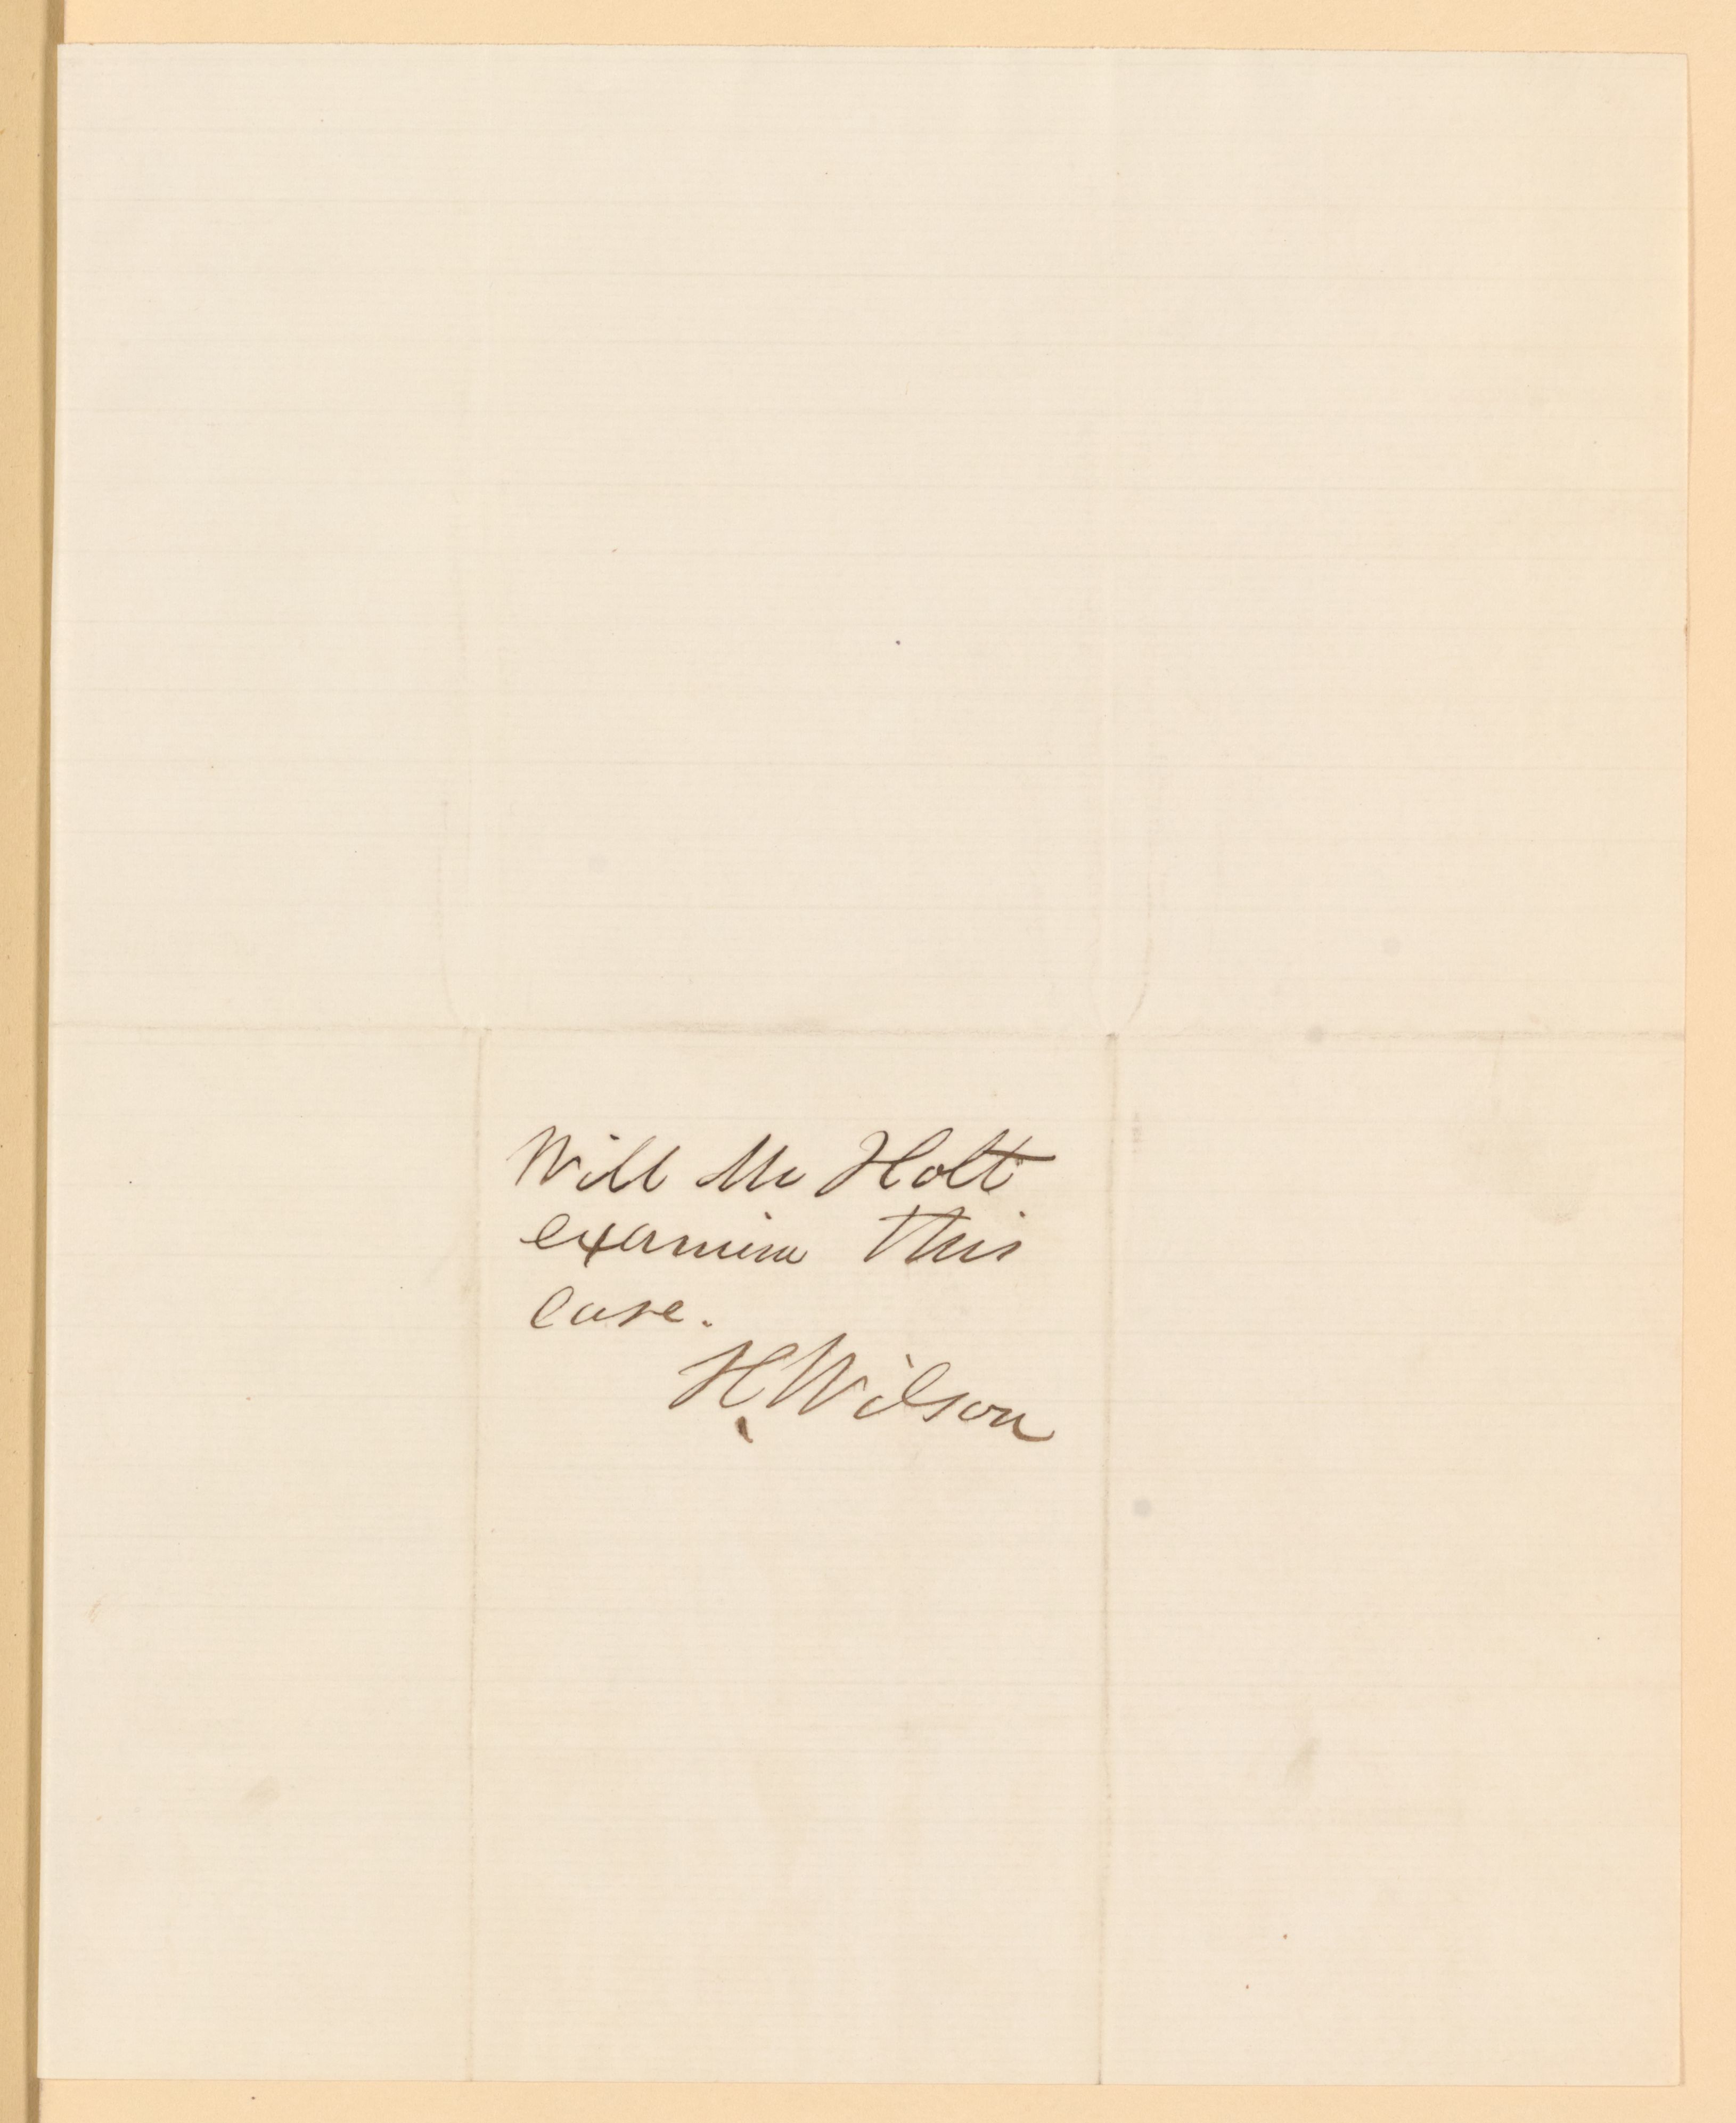 Will Mr Holt
examine this
case.
H. Wilson